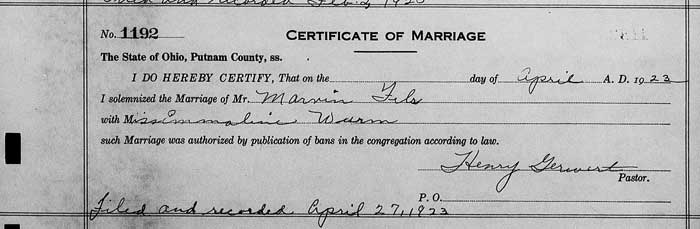 Filed and recorded Feb. 2 1923
No. 1192 CERTIFICATE OF MARRIAGE
The State of Ohio, Putnam County, ss.
I DO HEREBY CERTIFY, That on the day of April A. D. 1923
I solemnized the Marriage of Mr. Marvin Fels
with Miss Emmaline Wurm
such Marriage was authorized by publication of bans in the congregation according to law.
Henry Gerwert
Pastor.
P. O.
Filed and recorded April 27, 1923